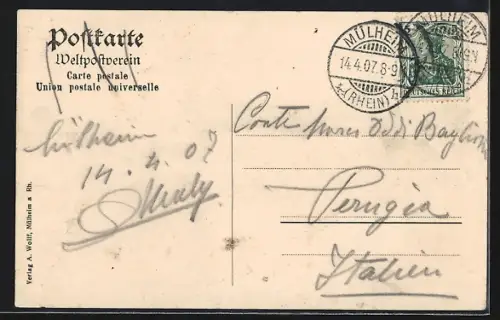 Postkarte
Weltpostverein
Carte postale
Union postale universelle
MÜLHEIM
14.4.07. 8-9
(RHEIN)
MÜLHEIM
Mülheim
14. 4. 07
Conte
Oddi
Perugia
Italien
Verlag A. Wolff, Mülheim a Rh.